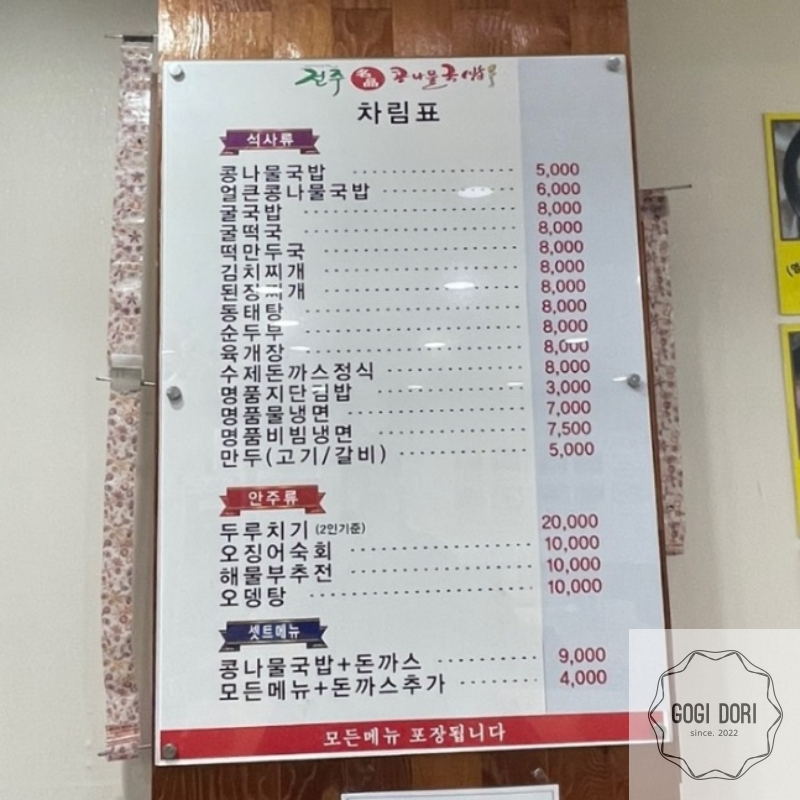 전주 名品 콩나물국밥
차림표
석사류
콩나물국밥 5,000
얼큰콩나물국밥 6,000
굴국밥 8,000
굴떡국 8,000
떡만두국 8,000
김치찌개 8,000
된장찌개 8,000
동태탕 8,000
순두부 8,000
육개장 8,000
수제돈까스정식 8,000
명품지단김밥 3,000
명품물냉면 7,000
명품비빔냉면 7,500
만두(고기/갈비) 5,000
안주류
두루치기 (2인기준) 20,000
오징어숙회 10,000
해물부추전 10,000
오뎅탕 10,000
셋트메뉴
콩나물국밥+돈까스 9,000
모든메뉴+돈까스추가 4,000
모든메뉴 포장됩니다
GOGI DORI
since. 2022